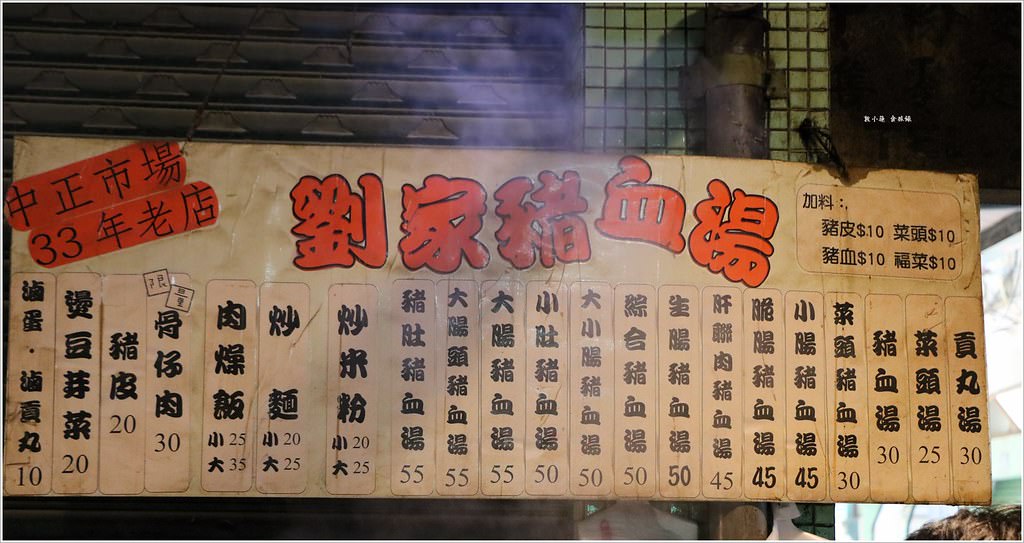 中正市場
33年老店
劉家豬血湯
加料:
豬皮$10 菜頭$10
豬血$10 福菜$10
貢丸湯 30
菜頭湯 25
豬血湯 30
菜頭豬血湯 30
小腸豬血湯 45
脆腸豬血湯 45
肝聯肉豬血湯 45
生腸豬血湯 50
綜合豬血湯 50
大小腸豬血湯 50
小肚豬血湯 50
大腸豬血湯 55
大腸頭豬血湯 55
豬肚豬血湯 55
炒米粉 小20 大25
炒麵 小20 大25
肉燥飯 小25 大35
限量
骨仔肉 30
豬皮 20
燙豆芽菜 20
滷蛋.滷貢丸 10